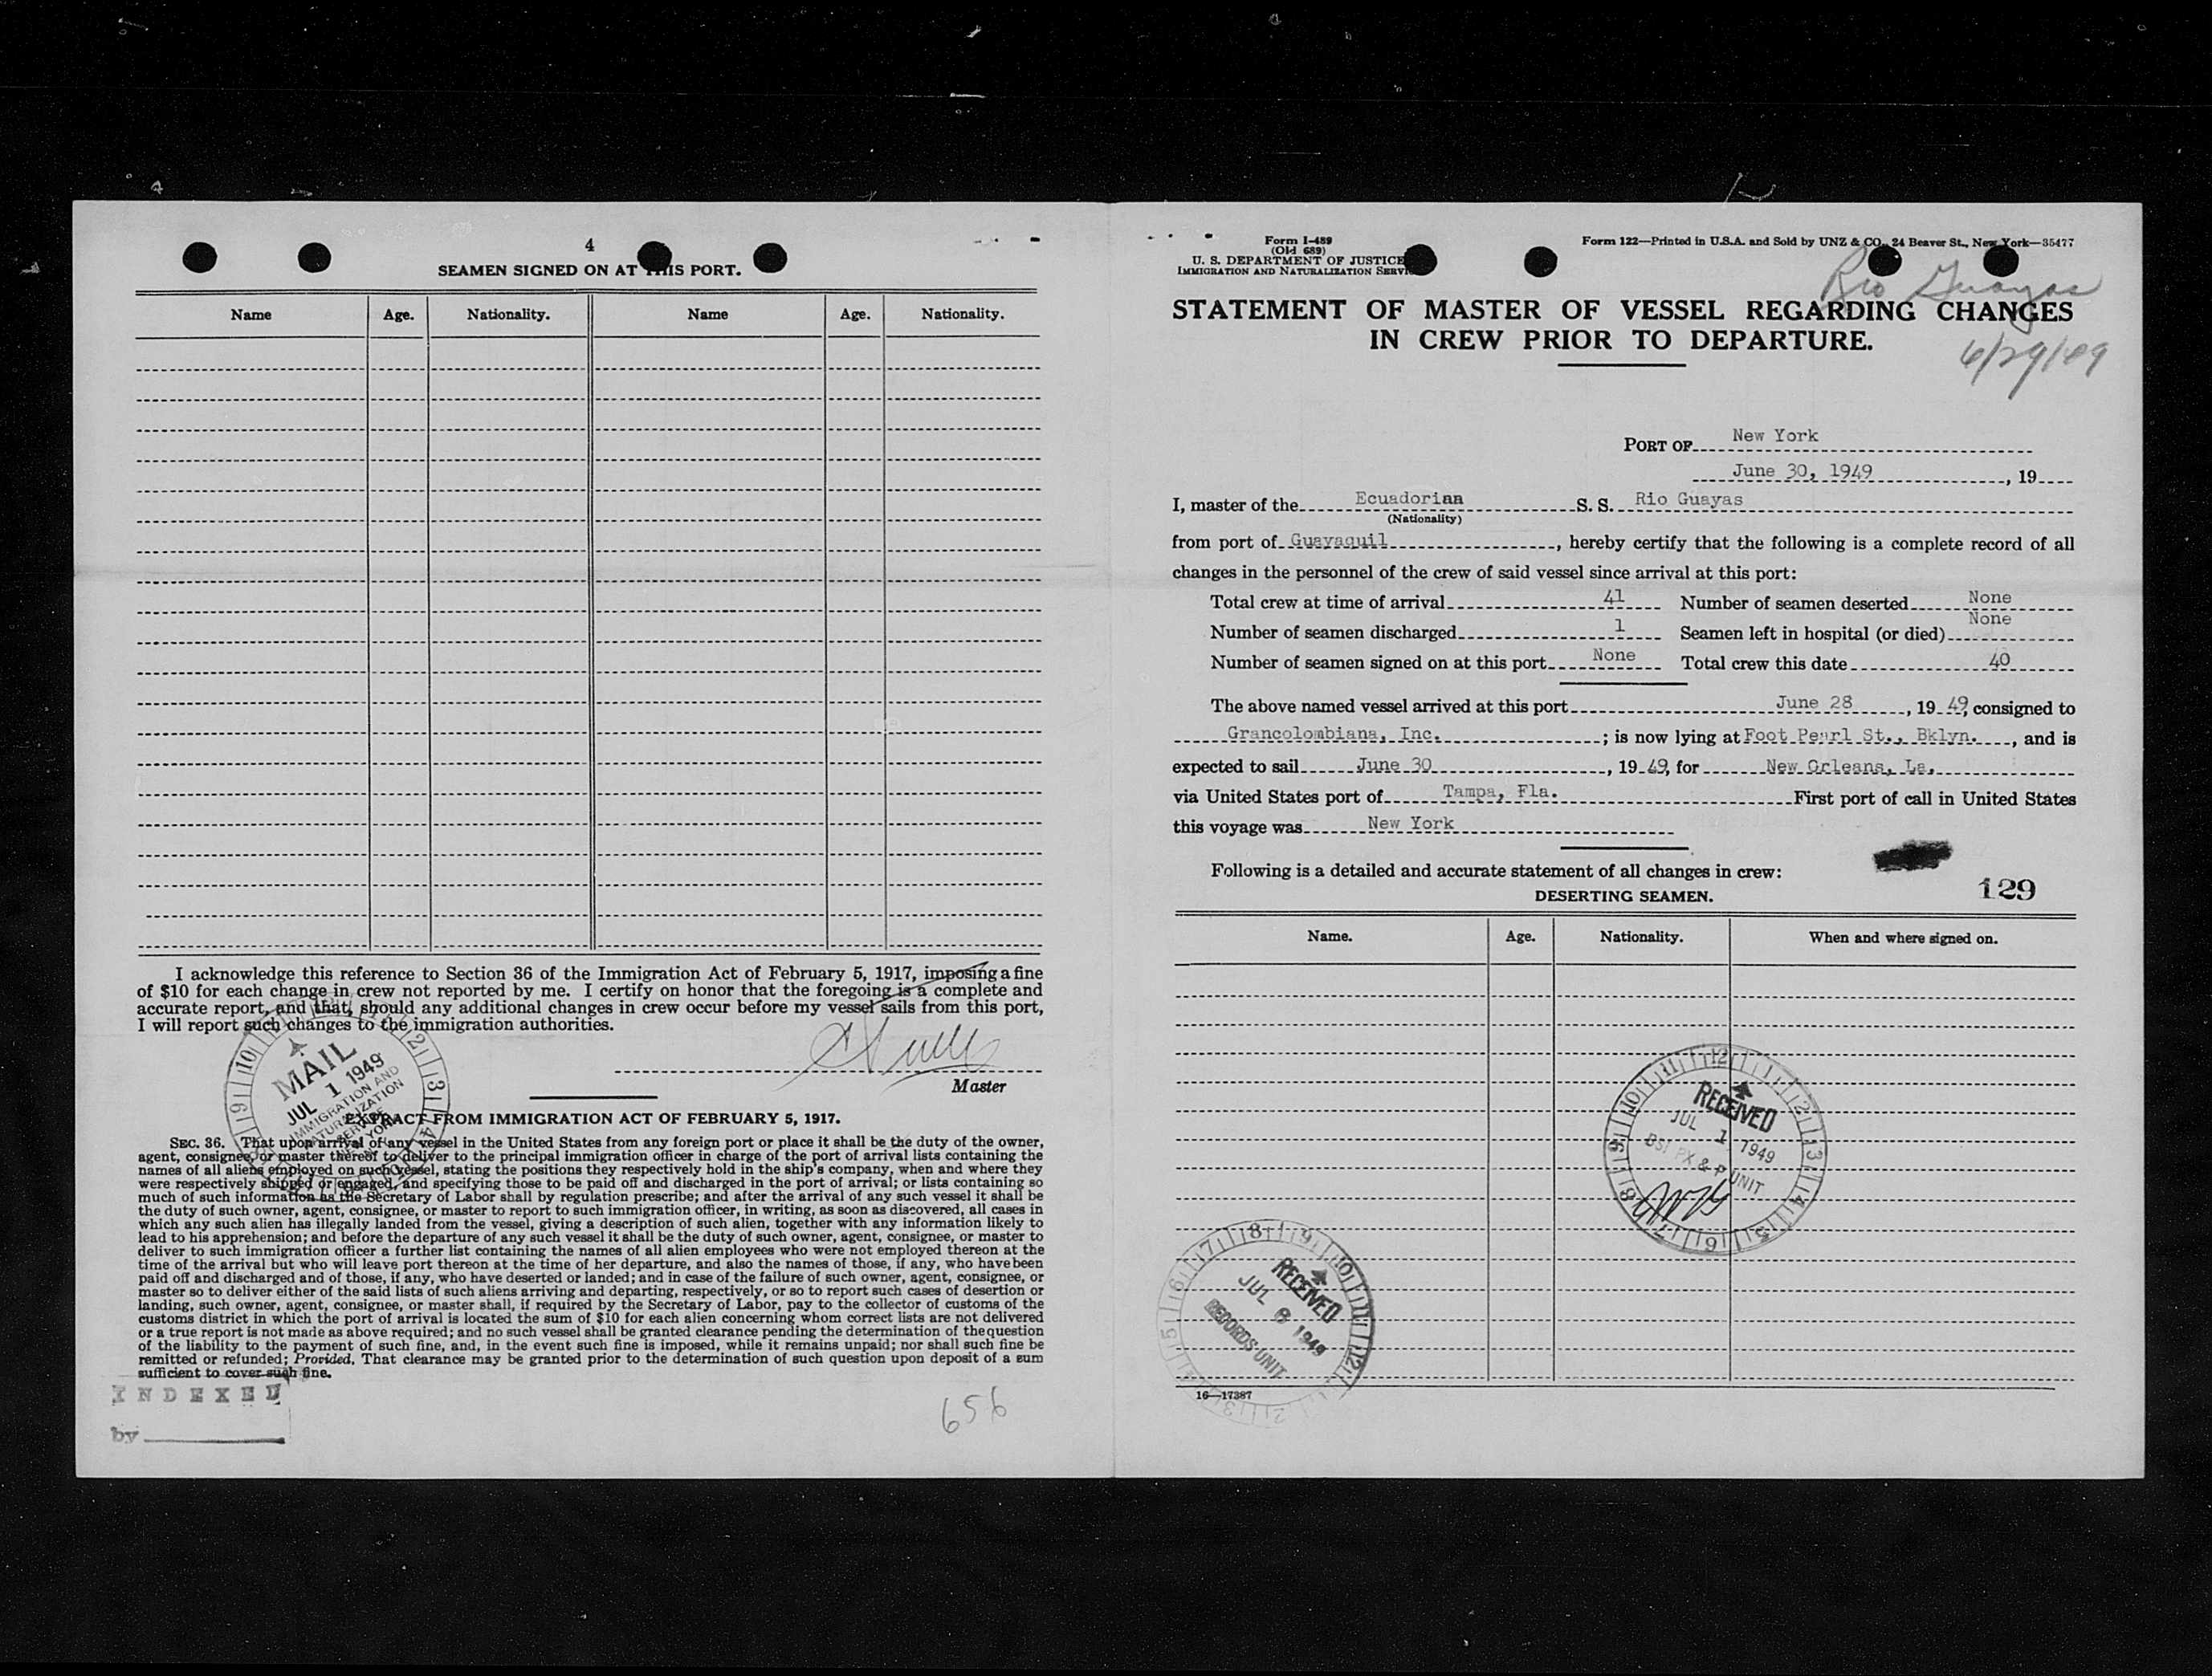 4
SEAMEN SIGNED ON AT THIS PORT.
Name Age. Nationality. Name Age. Nationality.
I acknowledge this reference to Section 36 of the Immigration Act of February 5, 1917, imposing a fine
of $10 for each change in crew not reported by me. I certify on honor that the foregoing is a complete and
accurate report, and that, should any additional changes in crew occur before my vessel sails from this port,
I will report such changes to the immigration authorities.
Master
MAIL
JUL 1 1949
IMMIGRATION AND
NATURALIZATION
SERVICE
EXTRACT FROM IMMIGRATION ACT OF FEBRUARY 5, 1917.
SEC. 36. That upon arrival of any vessel in the United States from any foreign port or place it shall be the duty of the owner,
agent, consignee, or master thereof to deliver to the principal immigration officer in charge of the port of arrival lists containing the
names of all aliens employed on such vessel, stating the positions they respectively hold in the ship's company, when and where they
were respectively shipped or engaged, and specifying those to be paid off and discharged in the port of arrival; or lists containing so
much of such information as the Secretary of Labor shall by regulation prescribe; and after the arrival of any such vessel it shall be
the duty of such owner, agent, consignee, or master to report to such immigration officer, in writing, as soon as discovered, all cases in
which any such alien has illegally landed from the vessel, giving a description of such alien, together with any information likely to
lead to his apprehension; and before the departure of any such vessel it shall be the duty of such owner, agent, consignee, or master to
deliver to such immigration officer a further list containing the names of all alien employees who were not employed thereon at the
time of the arrival but who will leave port thereon at the time of her departure, and also the names of those, if any, who have been
paid off and discharged and of those, if any, who have deserted or landed; and in case of the failure of such owner, agent, consignee, or
master so to deliver either of the said lists of such aliens arriving and departing, respectively, or so to report such cases of desertion or
landing, such owner, agent, consignee, or master shall, if required by the Secretary of Labor, pay to the collector of customs of the
customs district in which the port of arrival is located the sum of $10 for each alien concerning whom correct lists are not delivered
or a true report is not made as above required; and no such vessel shall be granted clearance pending the determination of the question
of the liability to the payment of such fine, and, in the event such fine is imposed, while it remains unpaid; nor shall such fine be
remitted or refunded; Provided, That clearance may be granted prior to the determination of such question upon deposit of a sum
sufficient to cover such fine.
INDEXED
by
656
Form I-489
(Old 689)
U. S. DEPARTMENT OF JUSTICE
IMMIGRATION AND NATURALIZATION SERVICE
Form 122—Printed in U.S.A. and Sold by UNZ & CO., 24 Beaver St., New York—35477
Rio Guayas
STATEMENT OF MASTER OF VESSEL REGARDING CHANGES
IN CREW PRIOR TO DEPARTURE.
6/29/49
PORT OF New York
June 30, 1949, 19
I, master of the Ecuadorian S. S. Rio Guayas
(Nationality)
from port of Guayaquil, hereby certify that the following is a complete record of all
changes in the personnel of the crew of said vessel since arrival at this port:
Total crew at time of arrival 41 Number of seamen deserted None
Number of seamen discharged 1 Seamen left in hospital (or died) None
Number of seamen signed on at this port None Total crew this date 40
The above named vessel arrived at this port June 28, 19 49, consigned to
Grancolombiana, Inc.; is now lying at Foot Pearl St., Bklyn., and is
expected to sail June 30, 19 49, for New Orleans, La.
via United States port of Tampa, Fla. First port of call in United States
this voyage was New York
Following is a detailed and accurate statement of all changes in crew:
129
DESERTING SEAMEN.
Name. Age. Nationality. When and where signed on.
RECEIVED
JUL 1 1949
BSI PX & P UNIT
RECEIVED
JUL 6 1949
RECORDS UNIT
16—17387